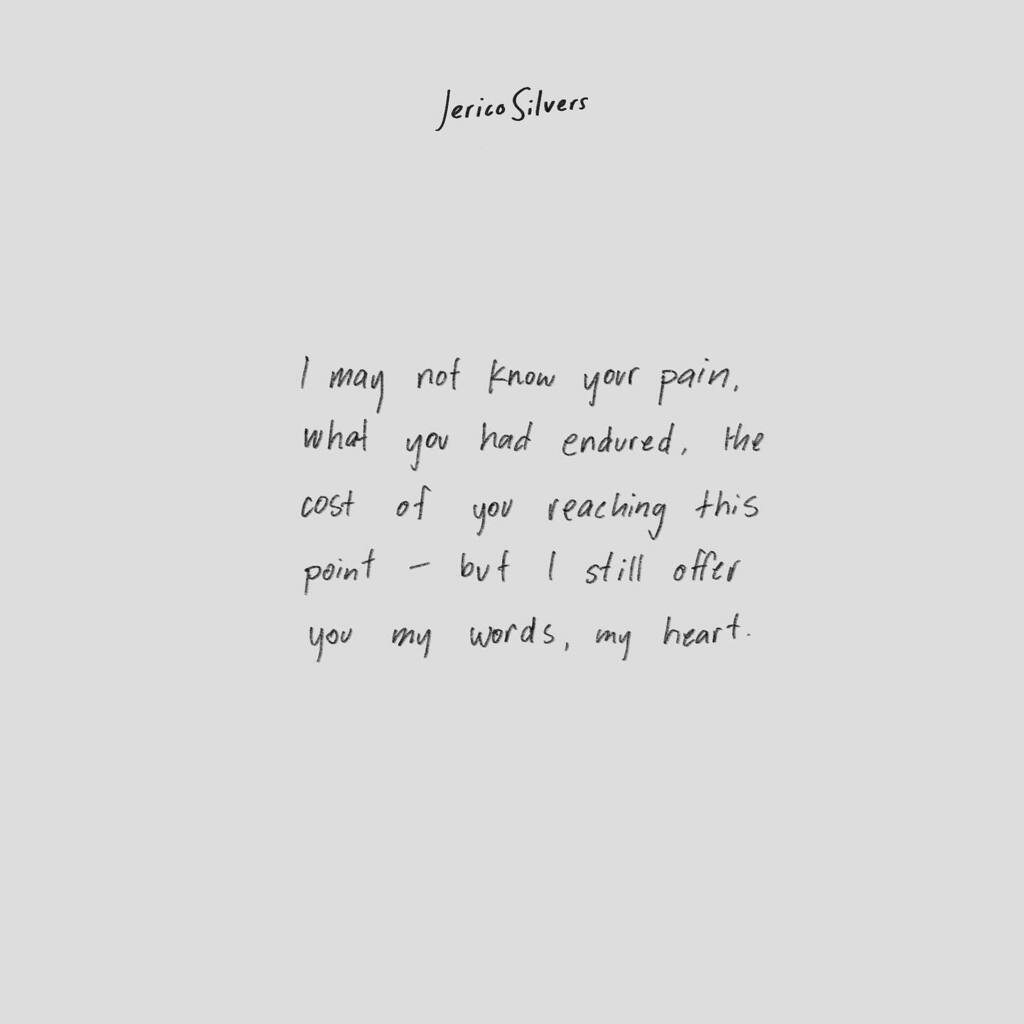 Jerico Silvers
I may not know your pain,
what you had endured, the
cost of you reaching this
point – but I still offer
you my words, my heart.